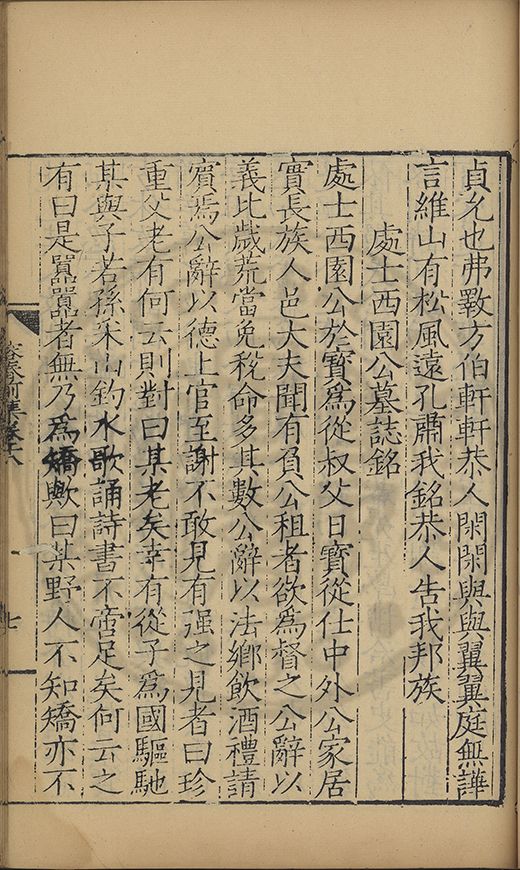 貞允也弗斁方伯軒軒恭人閑閑與與翼翼庭無譁
言維山有松風遠孔肅我銘恭人告我邦族
處士西園公墓誌銘
處士西園公於寶爲從叔父日寶從仕中外公家居
實長族人邑大夫聞有負公租者欲爲督之公辭以
義比歲荒當免稅命多其數公辭以法鄉飲酒禮請
賓焉公辭以德上官至謝不敢見有强之見者曰珍
重父老有何云則對曰某老矣幸有從子爲國驅馳
某與子若孫采山釣水歌誦詩書不啻足矣何云之
有曰是囂囂者無乃爲矯歟曰某野人不知矯亦不
容春前集卷十八
七